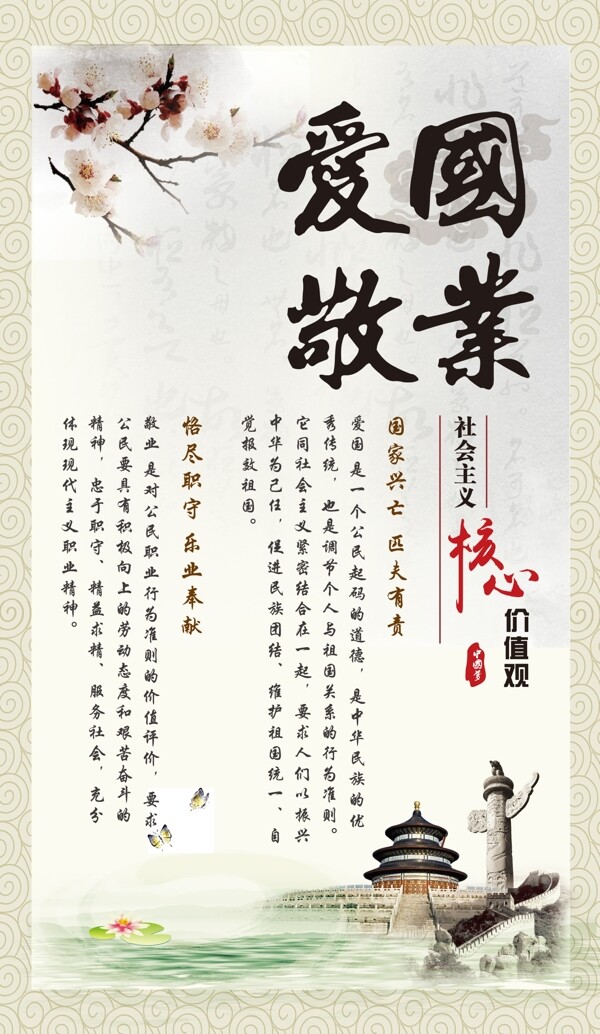 愛國
敬業
社会主义
核心
价值观
中國夢
国家兴亡 匹夫有责
爱国是一个公民起码的道德，是中华民族的优
秀传统，也是调节个人与祖国关系的行为准则。
它同社会主义紧密结合在一起，要求人们以振兴
中华为己任，促进民族团结、维护祖国统一、自
觉报效祖国。
恪尽职守 乐业奉献
敬业是对公民职业行为准则的价值评价，要求
公民要具有积极向上的劳动态度和艰苦奋斗的
精神，忠于职守、精益求精、服务社会，充分
体现现代主义职业精神。